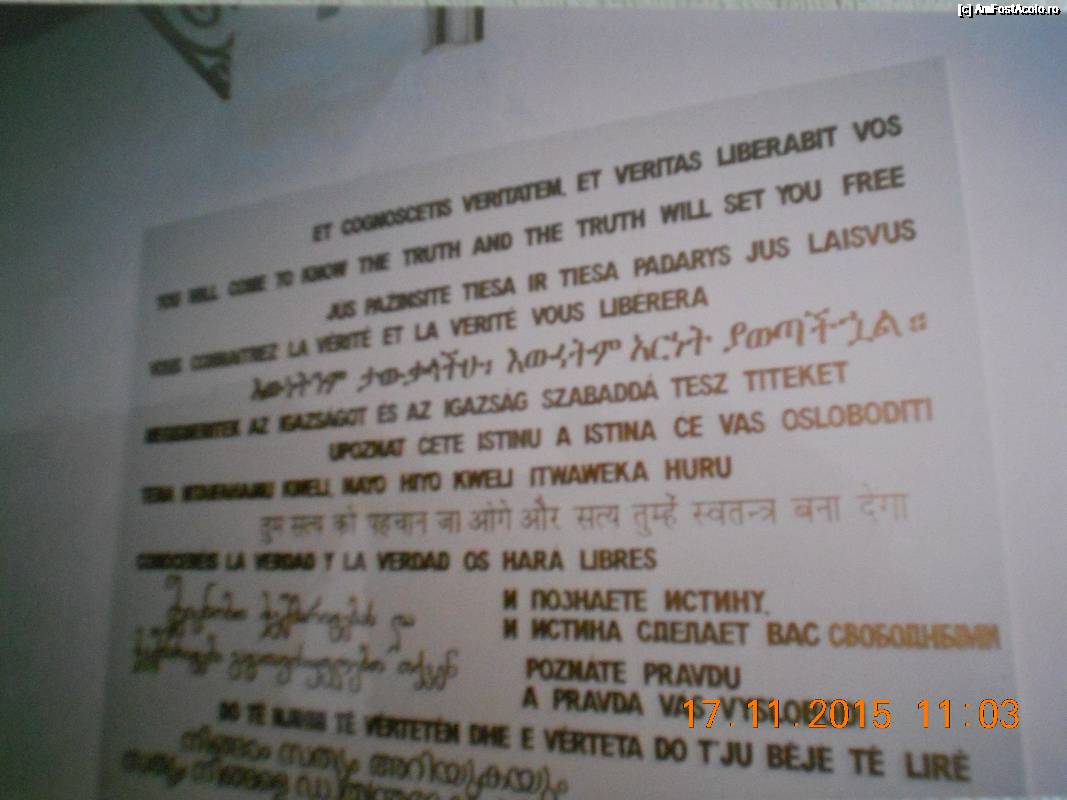 [c] AmFostAcolo.ro
ET COGNOSCETIS VERITATEM, ET VERITAS LIBERABIT VOS
YOU WILL COME TO KNOW THE TRUTH AND THE TRUTH WILL SET YOU FREE
JUS PAŽINSITE TIESA IR TIESA PADARYS JUS LAISVUS
VOUS CONNAITREZ LA VÉRITÉ ET LA VERITÉ VOUS LIBÉRERA
እውነትንም ታውቃላችሁ፡ እውነትም አርነት ያወጣችኋል።
MEGISMERITEK AZ IGAZSÁGOT ÉS AZ IGAZSÁG SZABADDÁ TESZ TITEKET
UPOZNAT CETE ISTINU A ISTINA CE VAS OSLOBODITI
KWELI, NAYO HIYO KWELI ITWAWEKA HURU
तुम सत्य को पहचान जा ओगे और सत्य तुम्हें स्वतन्त्र बना देगा
CONOCEREIS LA VERDAD Y LA VERDAD OS HARÁ LIBRES
И ПОЗНАЕТЕ ИСТИНУ,
И ИСТИНА СДЕЛАЕТ ВАС СВОБОДНЫМИ
და
თქვენ
POZNÁTE PRAVDU
A PRAVDA VAS
DO TË TË VËRTETËN DHE E VËRTETA DO T'JU BËJË TË LIRË
നിങ്ങൾ സത്യം അറിയുകയും
സത്യം
17.11.2015 11:03